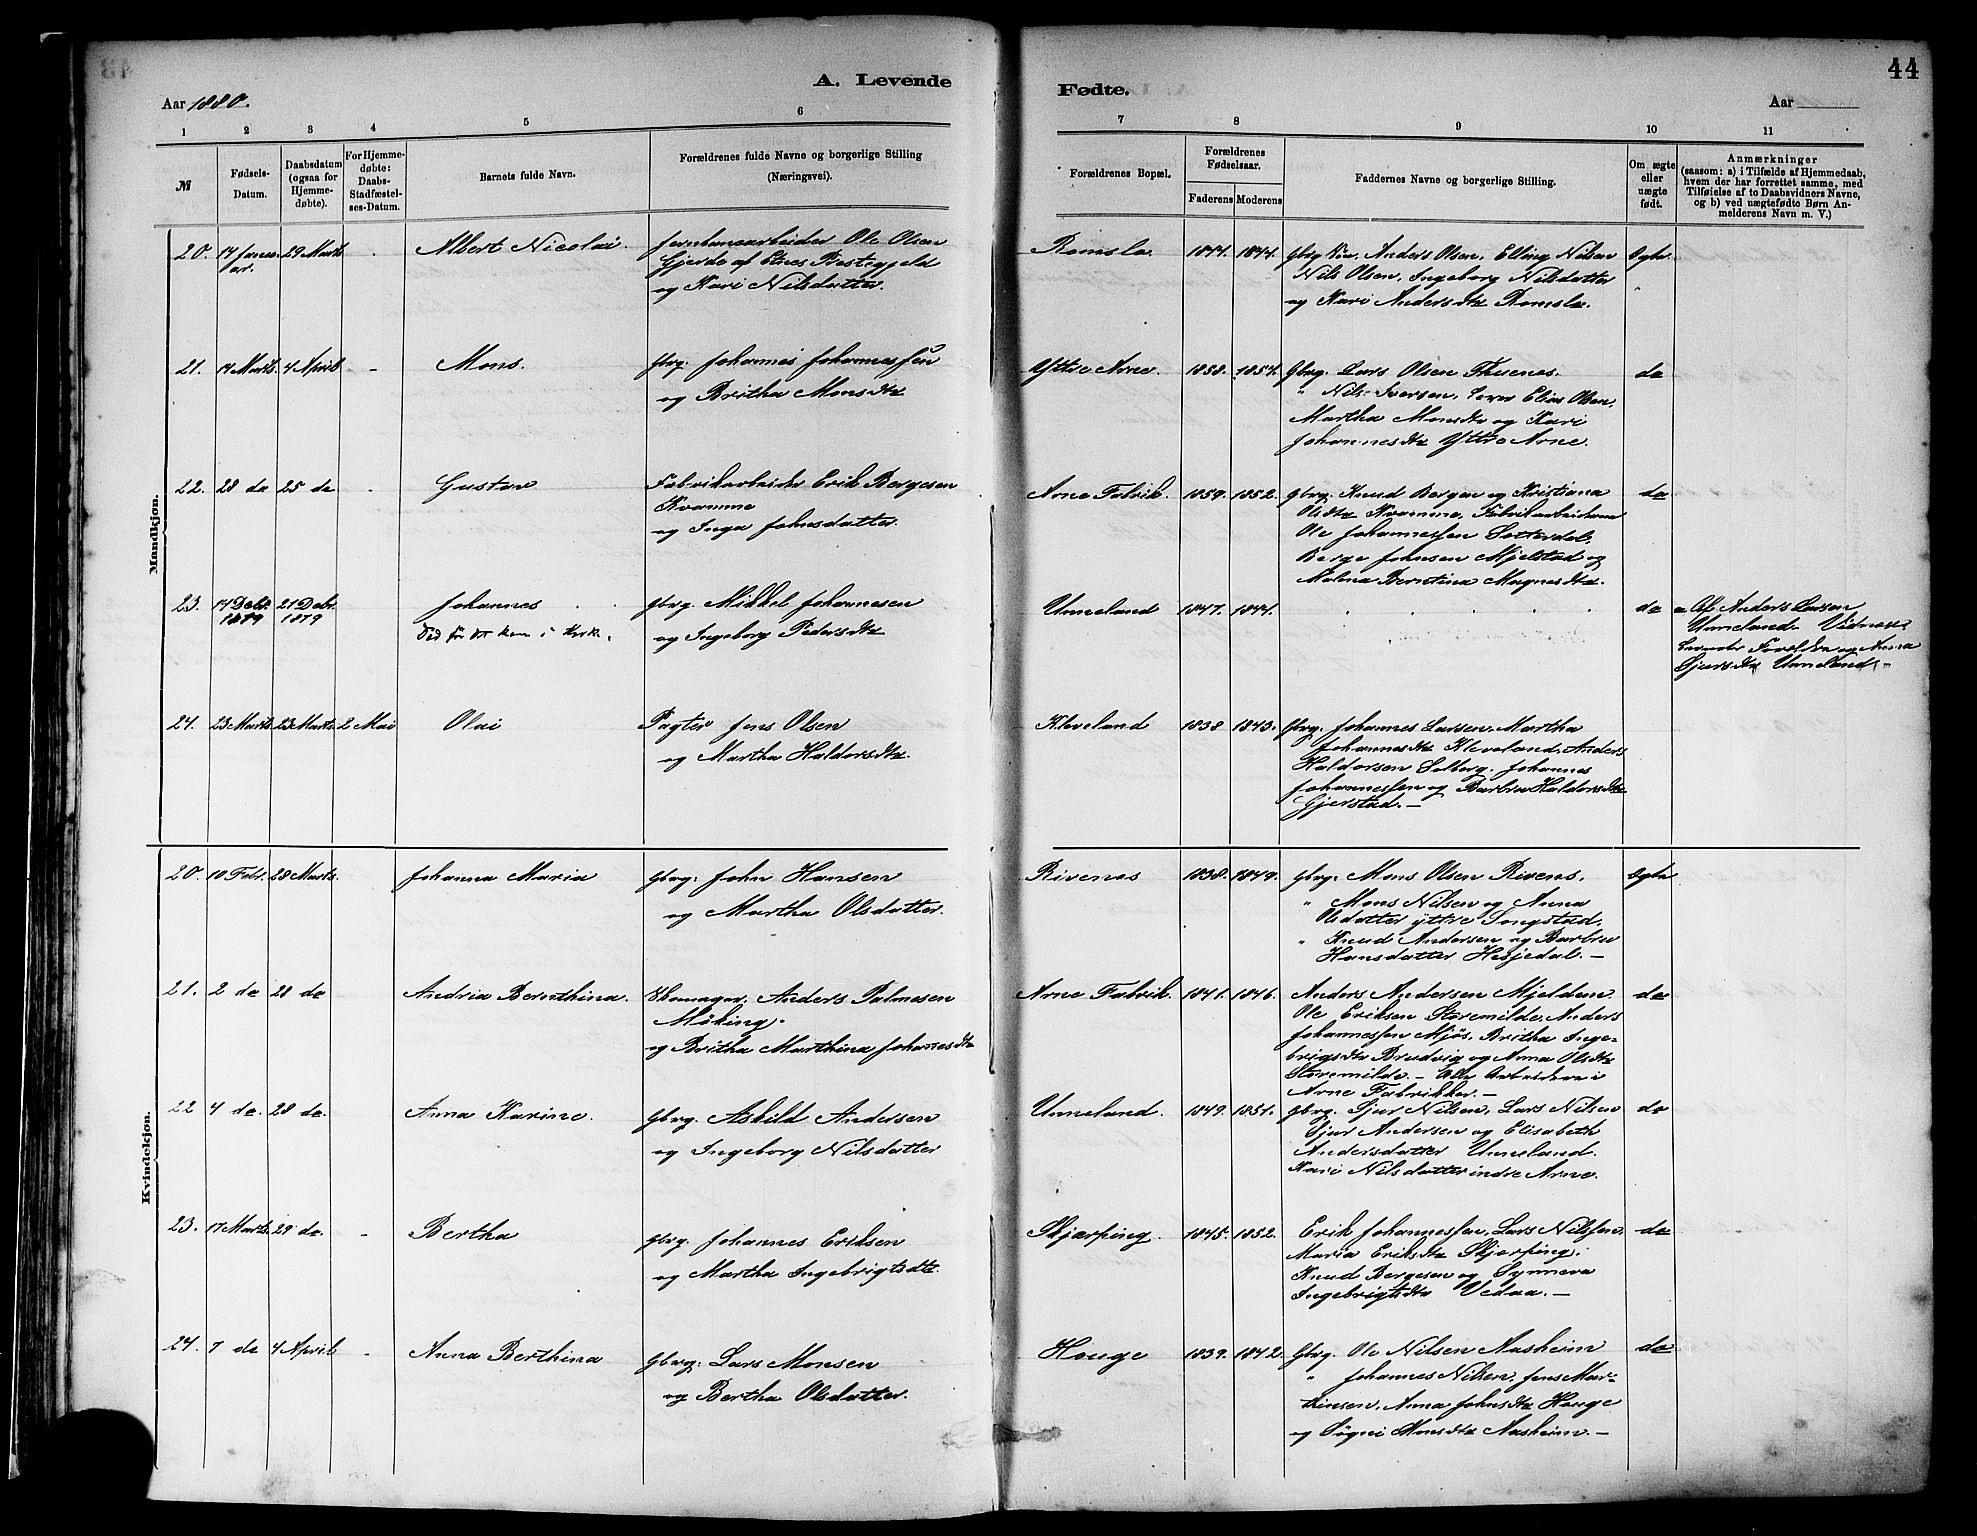 44
A. Levende
Fødte.
Aar 1880.
Aar
1 2 3 4 5 6 7 8 9 10 11
№
Fødsels-
Datum.
Daabsdatum
(ogsaa for
Hjemme-
døbte).
For Hjemme-
døbte:
Daabs-
Stadfæstel-
ses-Datum.
Barnets fulde Navn.
Forældrenes fulde Navne og borgerlige Stilling
(Næringsvei).
Forældrenes Bopæl.
Forældrenes
Fødselsaar.
Faderens Moderens
Faddernes Navne og borgerlige Stilling.
Om ægte
eller
uægte
født.
Anmærkninger
(saasom: a) i Tilfælde af Hjemmedaab,
hvem der har forrettet samme, med
Tilføielse af to Daabsvidners Navne,
og b) ved uægtefødte Børn An-
melderens Navn m. V.)
Mandkjøn.
20. 14 Janu- 29 Marts - Albert Nicolai.
ar.
Jernbanearbeider Ole Olsen
Gjerde af Etnes Prestegjeld
og Kari Nilsdatter.
Romslo 1844. 1844.
Anders Olsen, Elling Nilsen
Nils Olsen, Ingeborg Nilsdatter
og Kari Andersdtr Romslo.
Ægte
21. 14 Marts. 4 April - Mons.
Gbrg. Johannes Johannessen
og Britha Monsdtr
Yttre Arne. 1858. 1854.
Gbrg. Lars Olsen Thunes.
" Nils Iversen, Elias Olsen,
Martha Monsdtr og Kari
Johannesdtr Yttre Arne.
do
22. 28 do 25 do - Gustav
Fabrikarbeider Erik Bergesen
Kvamme
og Inga Johnsdatter.
Arne Fabrik. 1859. 1852.
Gbrg. Knud Bergen og Kristiana
Olsdtr Kvamme, Fabrikarbeiderne
Ole Johannessen Sætterdal,
Berge Johnsen Mjelstad og
Malena Berntina Magnesdtr.
do
23. 14 Debr. 21 Debr. Johannes
1879 1879
Død før det kom i Kirke.
Gbrg. Mikkel Johannesen
og Ingeborg Pedersdtr
Unneland 1847. 1844.
do
a Af Anders Larsen
Unneland. Vidner:
Forældre og Anna
Sjursdtr Unneland.
24. 23 Marts. 23 Marts. 2 Mai Olai
Pagter Jens Olsen
og Martha Haldorsdtr.
Kleveland 1838. 1843.
Gbrg. Johannes Larsen, Martha
Johannesdtr Kleveland, Anders
Haldorsen Solberg, Johannes
Johannessen og Barbra Haldorsdtr
Gjerstad. —
Kvindekjøn.
20. 10 Febr. 28 Marts. Johanna Maria
Gbrg. John Hansen
og Martha Olsdatter.
Rivenes 1838. 1849.
Gbrg. Mons Olsen Rivenes,
" Mons Nilsen og Anna
Olsdatter yttre Songstad.
" Knud Andersen og Barbra
Hansdatter Hesjedal. —
Ægte
21. 2 do 28 do Andria Bernthina.
Skomager. Anders Palmesen
Møking.
og Britha Marthina Johanesdtr
Arne Fabrik. 1841. 1846.
Anders Andersen Mjeldem.
Ole Eriksen Storemilde, Anders
Johannessen Mjøs, Britha Inge-
brigsdtr Brudvig og Anna Olsdtr
Storemilde. — Alle Arbeidere i
Arne Fabrikker. —
do
22 4 do. 28 do. Anna Karine.
Gbrg. Askild Andersen
og Ingeborg Nilsdatter
Unneland. 1849. 1851.
Gbrg. Sjur Nilsen, Lars Nilsen
Sjur Andersen og Elisabeth
Andersdatter Unneland.
Kari Nilsdatter indre Arne.
do
23. 17 Marts. 29 do. - Bertha
Gbrg. Johannes Eriksen
og Martha Ingebrigtsdtr.
Skjærping. 1845. 1852.
Erik Johannessen, Lars Nilssen,
Maria Eriksdtr Skjærping;
Knud Bergesen og Synneva
Ingebrigtsdtr Vedaa. —
do
24. 7 do 4 April - Anna Berthina
Gbrg: Lars Monsen
og Bertha Olsdatter.
Houge 1839. 1842.
Gbrg. Ole Nilsen Aasheim
" Johannes Nilsen, Jens Mar-
thinsen, Anna Johnsdtr Houge
og Søgni Monsdtr Aasheim. —
do